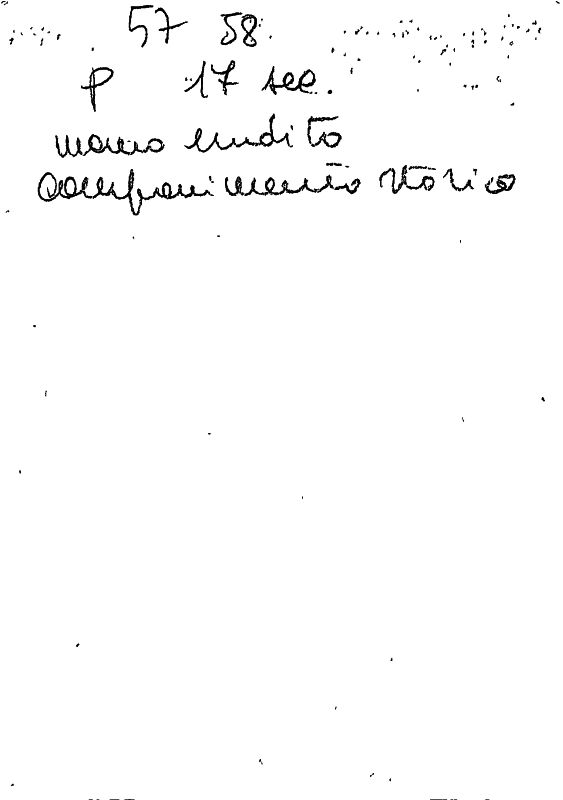 57 58
p 17 sec.
erudito
componimento storico